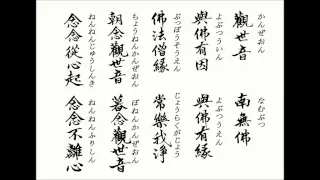 かんぜおん なむぶつ
觀世音 南無佛
よぶつういん よぶつうえん
與佛有因 與佛有縁
ぶっぽうそうえん じょうらくがじょう
佛法僧縁 常樂我淨
ちょうねんかんぜおん ぼねんかんぜおん
朝念觀世音 暮念觀世音
ねんねんじゅうしんき ねんねんふりしん
念念從心起 念念不離心